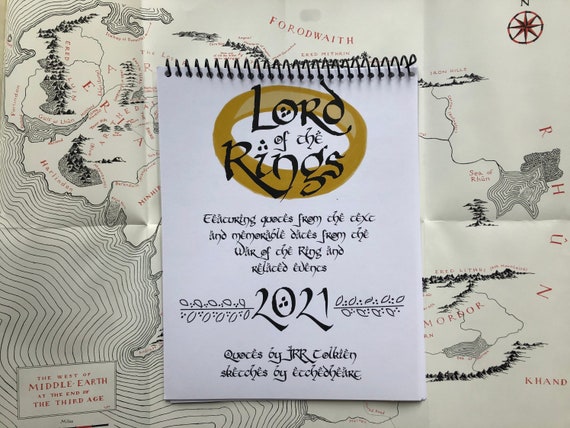 FORODWAITH
ERED MITHRIN
IRON HILLS
Sea of
Rhûn
RHÛN
ERED LITHUI
MORDOR
KHAND
Lord
of the
Rings
Featuring quotes from the text
and memorable dates from the
War of the Ring and
related events
2021
Quotes by JRR Tolkien
sketches by etchedheart
THE WEST OF
MIDDLE-EARTH
AT THE END OF
THE THIRD AGE
Miles